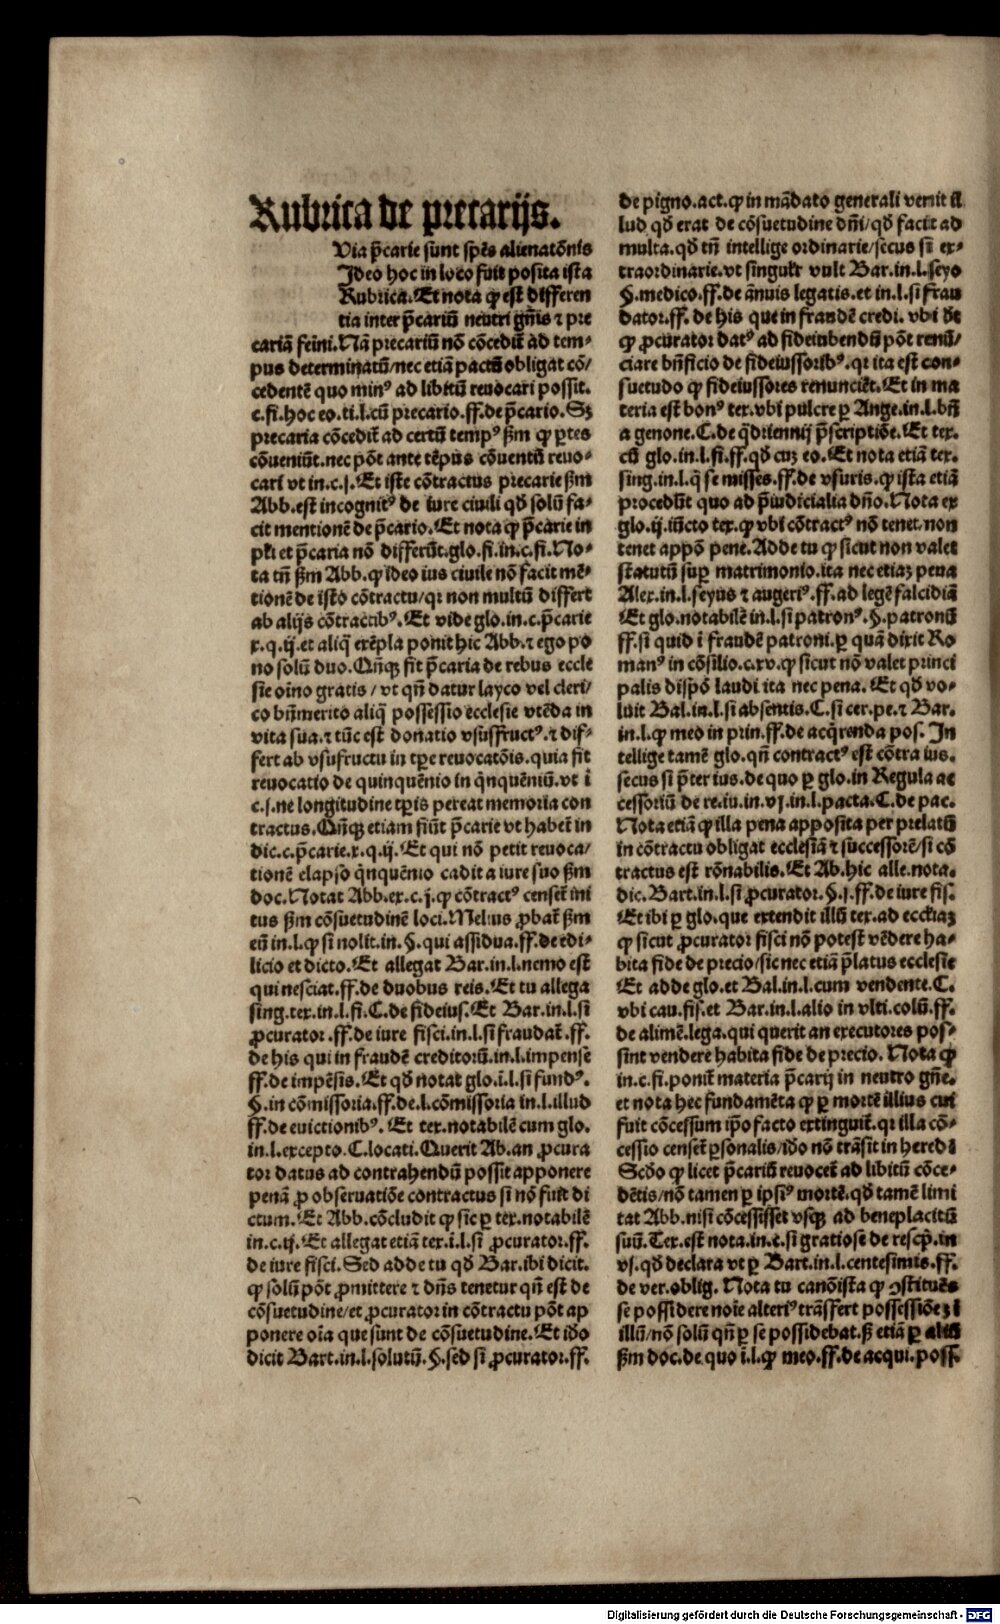 Rubrica de precarijs.
Via p̄carie sunt sp̄es alienatōnis
Ideo hoc in loco fuit posita ista
Rubrica. Et nota ꝙ est differen
tia inter p̄cariū neutri gn̄is ⁊ pre
cariā feini. Nā precariū nō cōcedit̄ ad tem-
pus determinatū/nec etiā pactū obligat cō/
cedentē quo minꝰ ad libitū reuocari possit.
c.fi. hoc eo.ti.l.cū precario.ff.de p̄cario. Sꝫ
precaria cōcedit̄ ad certū tempꝰ ẜm ꝙ ꝑtes
cōueniūt.nec pōt ante tēpus cōuentū reuo-
cari vt in.c.j. Et iste cōtractus precarie ẜm
Abb.est incognitꝰ de iure ciuili qd̄ solū fa-
cit mentionē de p̄cario. Et nota ꝙ p̄carie in
pl̄i et p̄caria nō differūt.glo.fi.in.c.fi. No-
ta tn̄ ẜm Abb.ꝙ ideo ius ciuile nō facit mē-
tionē de isto cōtractu/qr non multū differt
ab alijs cōtractibꝰ. Et vide glo.in.c.p̄carie
x.q.ij.et aliq̄ exēpla ponit hic Abb.⁊ ego po
no solū duo. Qn̄qꝫ fit p̄caria de rebus eccle
sie oīno gratis / vt qn̄ datur layco vel cleri/
co bn̄merito aliq̄ possessio ecclesie vtēda in
vita sua.⁊ tūc est donatio vsusfructꝰ.⁊ dif-
fert ab vsufructu in tꝑe reuocatōis.quia fit
reuocatio de quinquēnio in q̄nquēniū.vt ī
c.j.ne longitudine tꝑis pereat memoria con
tractus. Qn̄qꝫ etiam fiūt p̄carie vt habet̄ in
dic.c.p̄carie.x.q.ij. Et qui nō petit reuoca/
tionē elapso q̄nquēnio cadit a iure suo ẜm
doc. Notat Abb.ex.c.j.ꝙ cōtractꝰ censet̄ ini
tus ẜm cōsuetudinē loci. Melius ꝓbat̄ ẜm
eū in.l.ꝙ si nolit.in.§.qui assidua.ff.de edi-
licio et dicto. Et allegat Bar.in.l.nemo est
qui nesciat.ff.de duobus reis. Et tu allega
sing.tex.in.l.fi.C.de fideius. Et Bar.in.l.si
ꝓcurator.ff.de iure fisci.in.l.si fraudat̄.ff.
de his qui in fraudē creditorū.in.l.impense
ff.de impēsis. Et qd̄ notat glo.ī.l.si fundꝰ.
§.in cōmissoria.ff.de.l.cōmissoria in.l.illud
ff.de euictionibꝰ. Et tex.notabilē cum glo.
in.l.excepto.C.locati. Querit Ab.an ꝓcura
tor datus ad contrahendū possit apponere
penā ꝓ obseruatiōe contractus si nō fuit di
ctum. Et Abb.cōcludit ꝙ sic ꝑ tex.notabilē
in.c.ij. Et allegat etiā tex.ī.l.si ꝓcurator.ff.
de iure fisci. Sed adde tu qd̄ Bar.ibi dicit.
ꝙ solū pōt ꝓmittere ⁊ dn̄s tenetur qn̄ est de
cōsuetudine/et ꝓcurator in cōtractu pōt ap
ponere oīa que sunt de cōsuetudine. Et iō
dicit Bart.in.l.solutū.§.sed si ꝓcurator.ff.
de pigno.act.ꝙ in mādato generali venit il
lud qd̄ erat de cōsuetudine dn̄i/qd̄ facit ad
multa.qd̄ tn̄ intellige ordinarie/secus si ex-
traordinarie.vt singulr̄ vult Bar.in.l.seyo
§.medico.ff.de ānuis legatis.et in.l.si frau
dator.ff. de his que in fraudē credi. vbi dt̄
ꝙ ꝓcurator datꝰ ad fideiubendū pōt renū/
ciare bn̄ficio de fideiussoribꝰ.qr ita est con-
suetudo ꝙ fideiussores renunciēt. Et in ma
teria est bonꝰ tex.vbi pulcre ꝑ Ange.in.l.bn̄
a genone. C.de q̄driennij p̄scriptiōe. Et tex.
cū glo.in.l.fi.ff.qd̄ cuꝫ eo. Et nota etiā tex.
sing.in.l.q̄ se misses.ff.de vsuris.ꝙ ista etiā
procedūt quo ad p̄iudicialia dn̄o. Nota ex
glo.ij.iūcto tex.ꝙ vbi cōtractꝰ nō tenet.non
tenet appō pene. Adde tu ꝙ sicut non valet
statutū suꝑ matrimonio.ita nec etiaꝫ pena
Alex.in.l.seyus ⁊ augeriꝰ.ff.ad legē falcidiā
Et glo.notabilē in.l.si patronꝰ.§.patronū
ff.si quid ī fraudē patroni.ꝑ quā dixit Ro
manꝰ in cōsilio.c.xv.ꝙ sicut nō valet princi
palis dispō laudi ita nec pena. Et qd̄ vo-
luit Bal.in.l.si absentis.C.si cer.pe.⁊ Bar.
in.l.ꝙ meo in prin.ff.de acq̄renda pos. In
tellige tamē glo.qn̄ contractꝰ est cōtra ius.
secus si p̄ter ius.de quo ꝑ glo.in Regula ac
cessoriū de re.iu.in.vj.in.l.pacta.C.de pac.
Nota etiā ꝙ illa pena apposita per prelatū
in cōtractu obligat ecclesiā ⁊ successorē/si cō
tractus est rōnabilis. Et Ab.hic alle.nota.
dic.Bart.in.l.si ꝓcurator.§.j.ff.de iure fis.
Et ibi ꝑ glo.que extendit illū tex.ad eccliaꝫ
ꝙ sicut ꝓcurator fisci nō potest vēdere ha-
bita fide de precio/sic nec etiā p̄latus ecclesie
Et adde glo.et Bal.in.l.cum vendente.C.
vbi cau.fis.et Bar.in.l.alio in vlti.colū.ff.
de alimē.lega.qui querit an executores pos-
sint vendere habita fide de precio. Nota ꝙ
in.c.fi.ponit̄ materia p̄carij in neutro gn̄e.
et nota hec fundamēta ꝙ ꝑ mortē illius cui
fuit cōcessum ip̄o facto extinguit̄.qr illa cō-
cessio censet̄ ꝑsonalis/iō nō trāsit in heredē
Scd̄o ꝙ licet p̄cariū reuocet̄ ad libitū cōce-
dētis/nō tamen ꝑ ipsiꝰ mortē.qd̄ tamē limi
tat Abb.nisi cōcessisset vsqꝫ ad beneplacitū
suū. Tex.est nota.in.c.si gratiose de rescp̄.in
vj.qd̄ declara vt ꝑ Bart.in.l.centesimis.ff.
de ver.oblig. Nota tu canōista ꝙ ꝯstituēs
se possidere noīe alteriꝰ trāsfert possessiōeꝫ ī
illū/nō solū qn̄ ꝑ se possidebat.ẜ etiā ꝑ aliū
ẜm doc.de quo ī.l.ꝙ meo.ff.de acqui.poss.
Digitalisierung gefördert durch die Deutsche Forschungsgemeinschaft - DFG